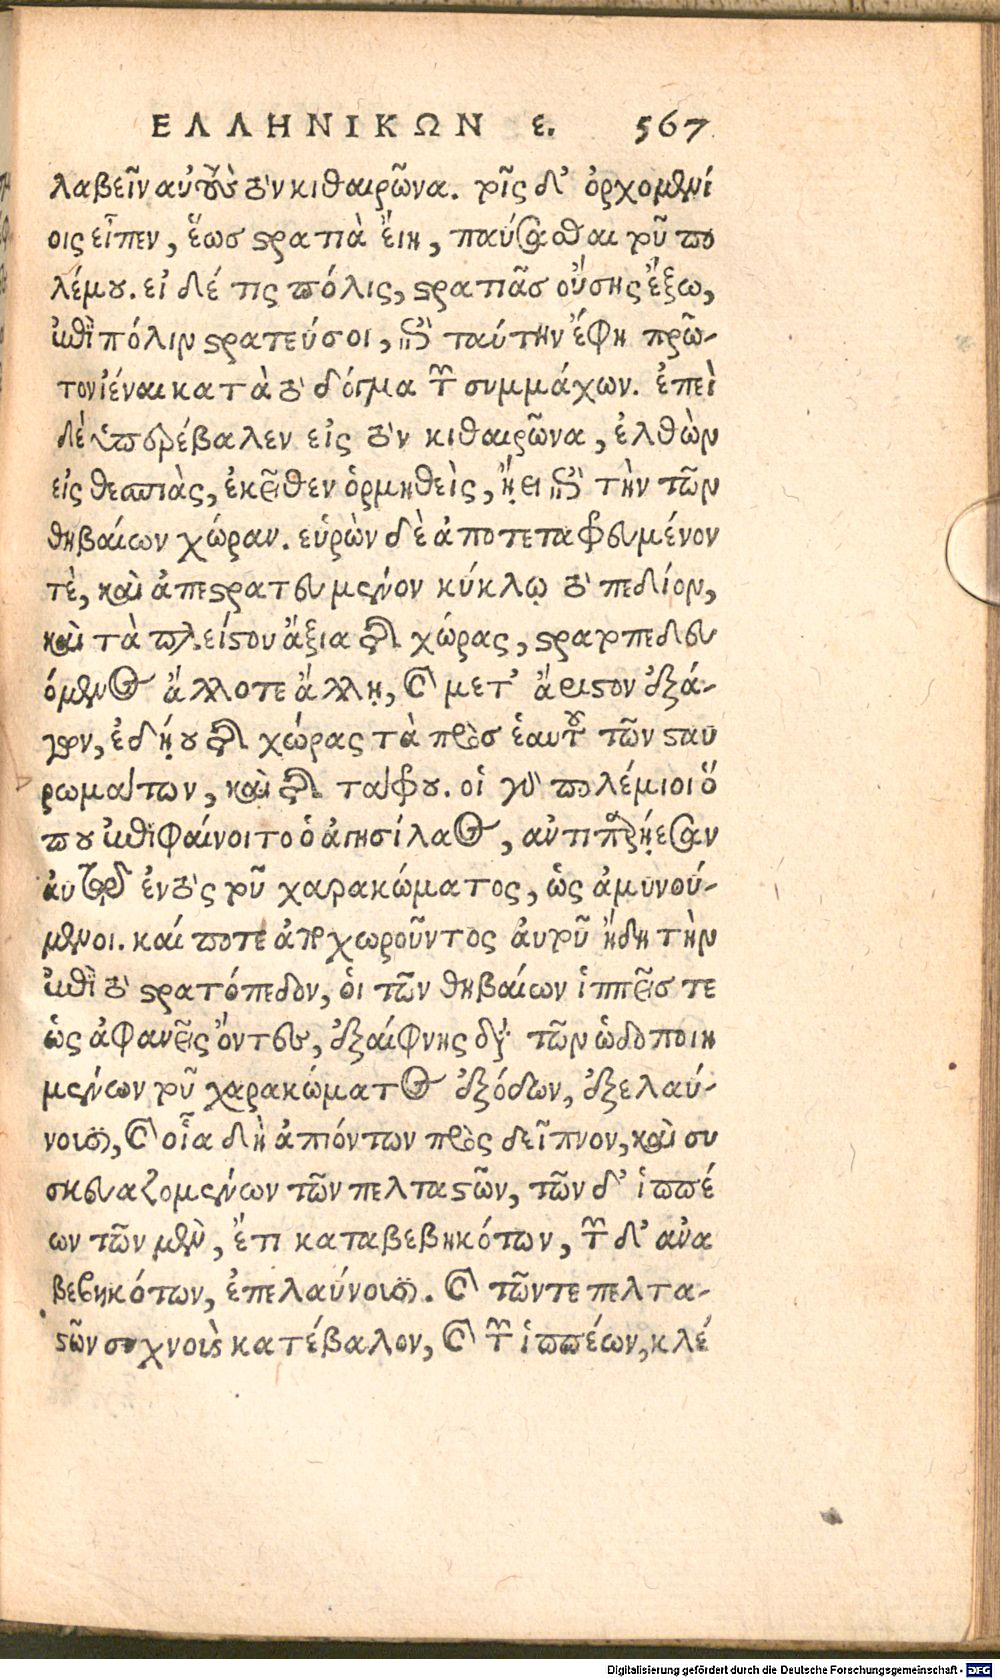 ΕΛΛΗΝΙΚΩΝ ε. 567
λαβεῖν αὐτοὺς τὸν κιθαιρῶνα. τοῖς δ' ὀρχομενί
οις εἶπεν, ἕως στρατιὰ εἴη, παύσασθαι τοῦ πο
λέμου. εἰ δέ τις πόλις, στρατιᾶς οὔσης ἔξω,
ἐπὶ πόλιν στρατεύσοι, ἐπὶ ταύτην ἔφη πρῶ-
τον ἰέναι κατὰ τὸ δόγμα τῶν συμμάχων. ἐπεὶ
δὲ ὑπερέβαλεν εἰς τὸν κιθαιρῶνα, ἐλθὼν
εἰς θεσπιὰς, ἐκεῖθεν ὁρμηθεὶς, ᾔει ἐπὶ τὴν τῶν
θηβαίων χώραν. εὑρὼν δὲ ἀποτεταφρευμένον
τὲ, καὶ ἀπεστρατευμένον κύκλῳ τὸ πεδίον,
καὶ τὰ πλείστου ἄξια τῆς χώρας, στρατπεδευ
όμενος ἄλλοτε ἄλλῃ, καὶ μετ' ἄριστον ἐξά-
γων, ἐδῄου τῆς χώρας τὰ πρὸς ἑαυτοῦ τῶν σταυ
ρωμάτων, καὶ τῆς τάφρου. οἱ γὰρ πολέμιοι ὅ
που ἐπιφαίνοιτο ὁ ἀγησίλαος, ἀντιπαρῄεσαν
αὐτῷ ἐντὸς τοῦ χαρακώματος, ὡς ἀμυνού-
μενοι. καί ποτε ἀποχωροῦντος αὐτοῦ ἤδη τὴν
ἐπὶ τὸ στρατόπεδον, ὁι τῶν θηβαίων ἱππεῖς τε
ὡς ἀφανεῖς ὄντες, ἐξαίφνης διὰ τῶν ὡδοποιη
μένων τοῦ χαρακώματος ἐξόδων, ἐξελαύ-
νουσι, καὶ οἷα δὴ ἀπιόντων πρὸς δεῖπνον, καὶ συ
σκευαζομένων τῶν πελταστῶν, τῶν δ' ἱππέ
ων τῶν μὲν, ἔτι καταβεβηκότων, τῶν δ' ἀνα
βεβηκότων, ἐπελαύνουσι. καὶ τῶν τε πελτα-
στῶν συχνοὺς κατέβαλον, καὶ τῶν ἱππέων, κλέ
Digitalisierung gefördert durch die Deutsche Forschungsgemeinschaft - DFG